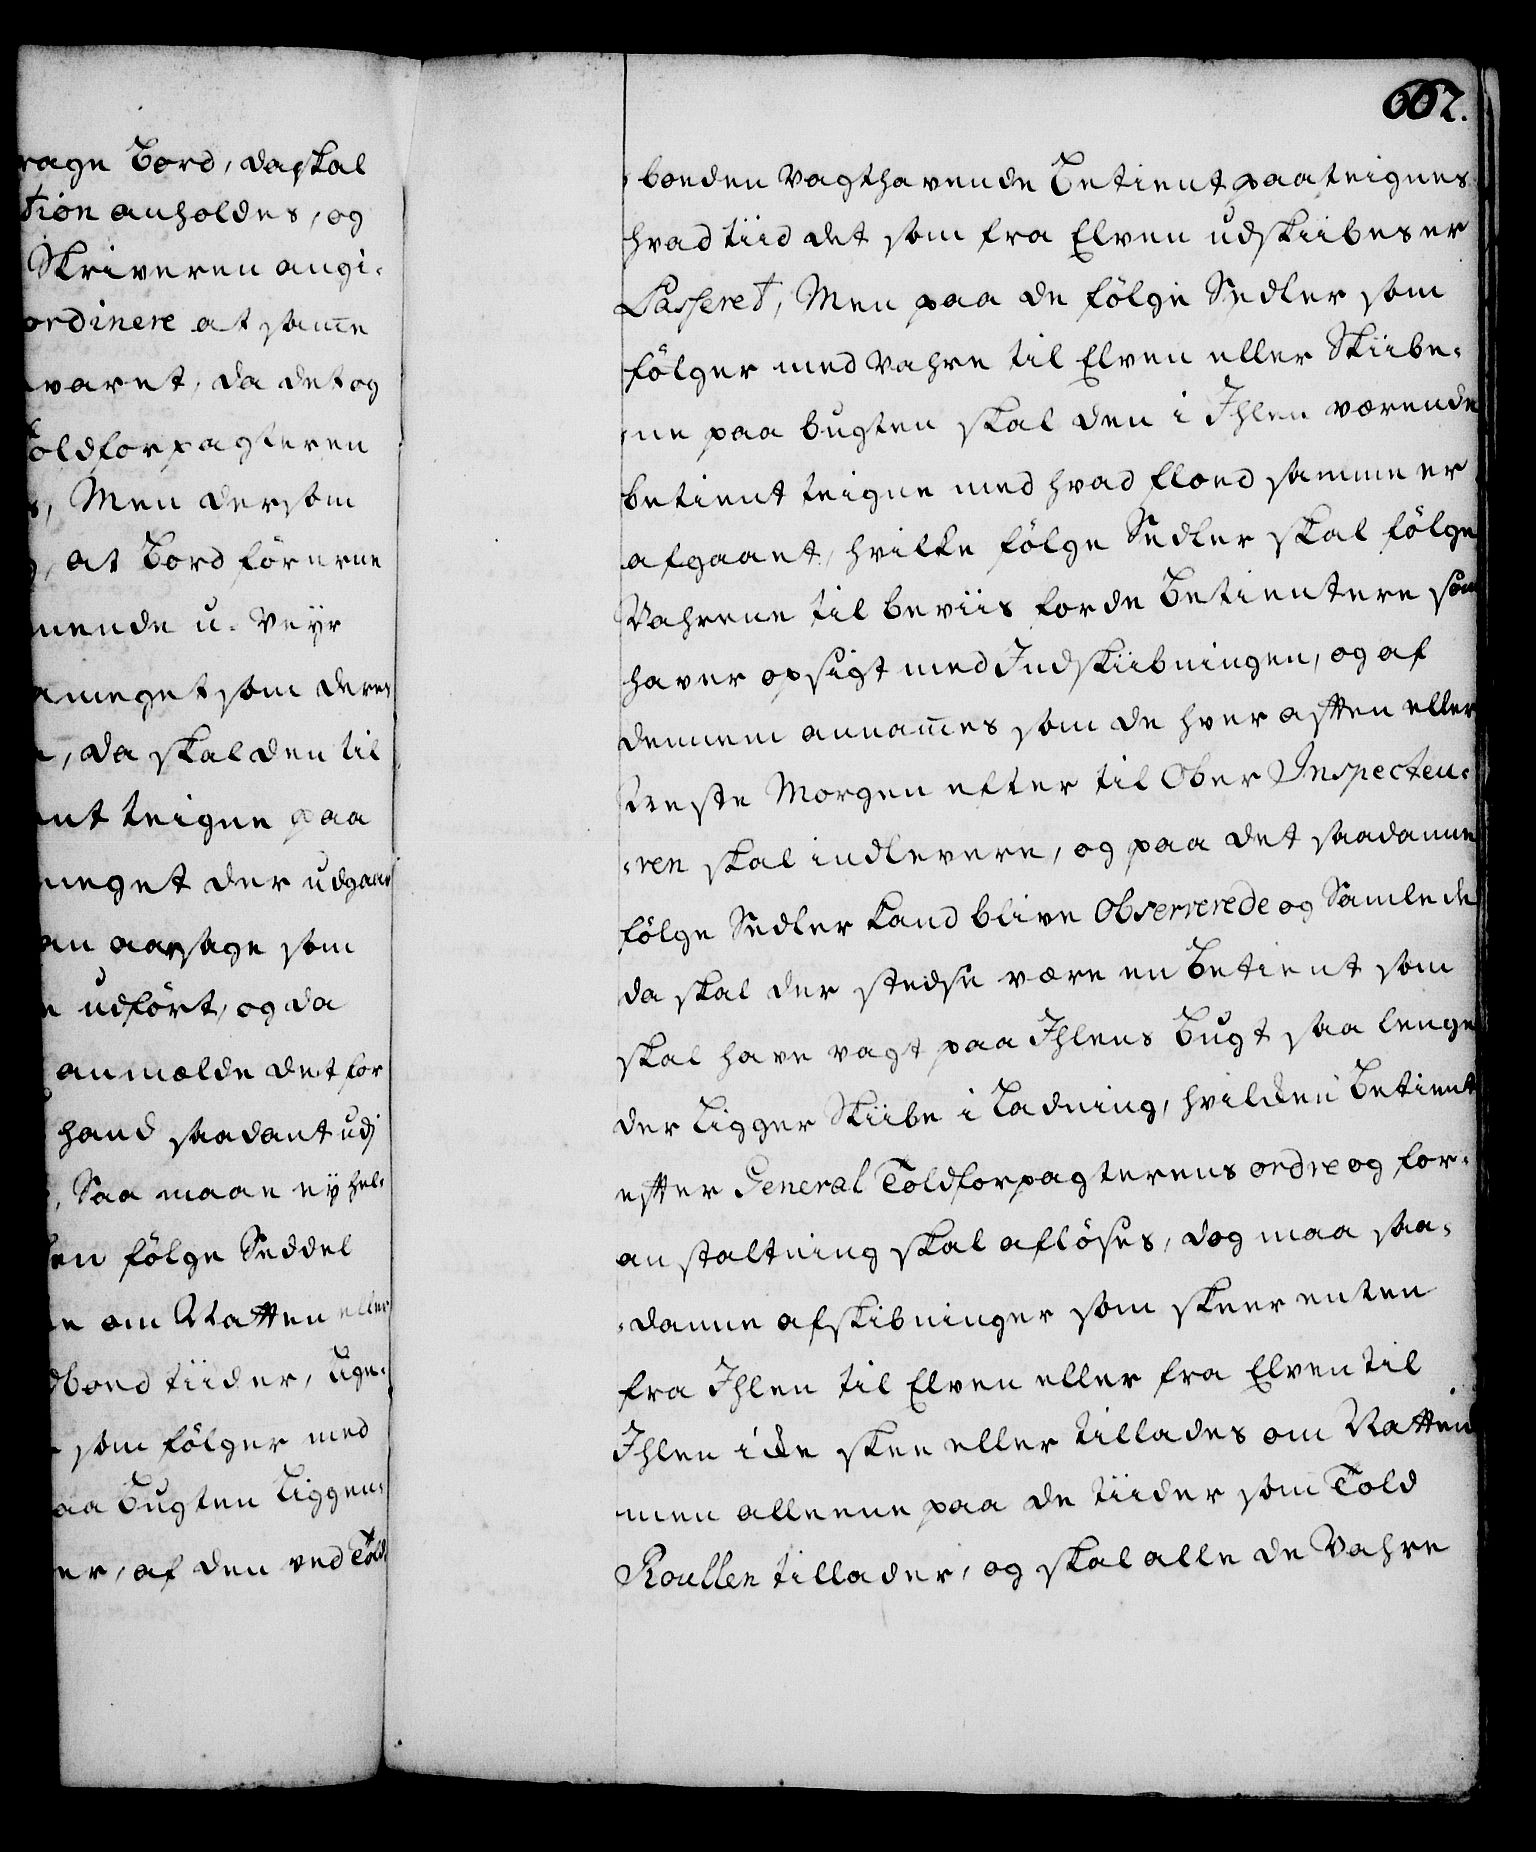 rage Bord, da skal
tion anholdes, og
Skriveren angi-
ordinere at same
varet, da det og
Toldforpagteren
s, Men dersom
at Bord förerne
mende u-Veyr
meget som deres
, da skal den til
ent teigne paa
meget der udgaar
an aarsage som
udført, og da
anmælde det for
hand saadant udj
, Saa maae ey hel-
en følge Seddel
om Natten eller
dboed tiider, lige-
som følger med
aa Bugten Liggen-
er, af den ved Told
662.
-boeden Vagthavende Betient paateignes
hvad tiid det som fra Elven udskiibes er
Passeret, Men paa de fölge Sedler som
fölger med Vahre til Elven eller Skiibe-
-ne paa bugten skal den i Ihlen værende
betient teigne med hvad Floed samme er
afgaaet, hvilke fölge Sedler skal fölge
Vahrene til beviis for de Betientere som
haver opsigt med Indskiibningen, og af
dennem annames som de hver aften eller
Neste Morgen efter til Ober Inspecteu-
-ren skal indlevere, og paa det saadanne
fölge Sedler kand blive Observerede og Samlede
da skal der stedse være en Betient som
skal have vagt paa Ihlens Bugt saa lenge
der Ligger Skiibe i Ladning, hvilken Betient
efter General Toldforpagterens ordre og for-
anstaltning skal aflöses, dog maa saa-
-danne afskibninger som skeer enten
fra Ihlen til Elven eller fra Elven til
Ihlen icke skee eller tillades om Natten
men alleene paa de tiider som Told
Roullen tillader, og skal alle de Vahre